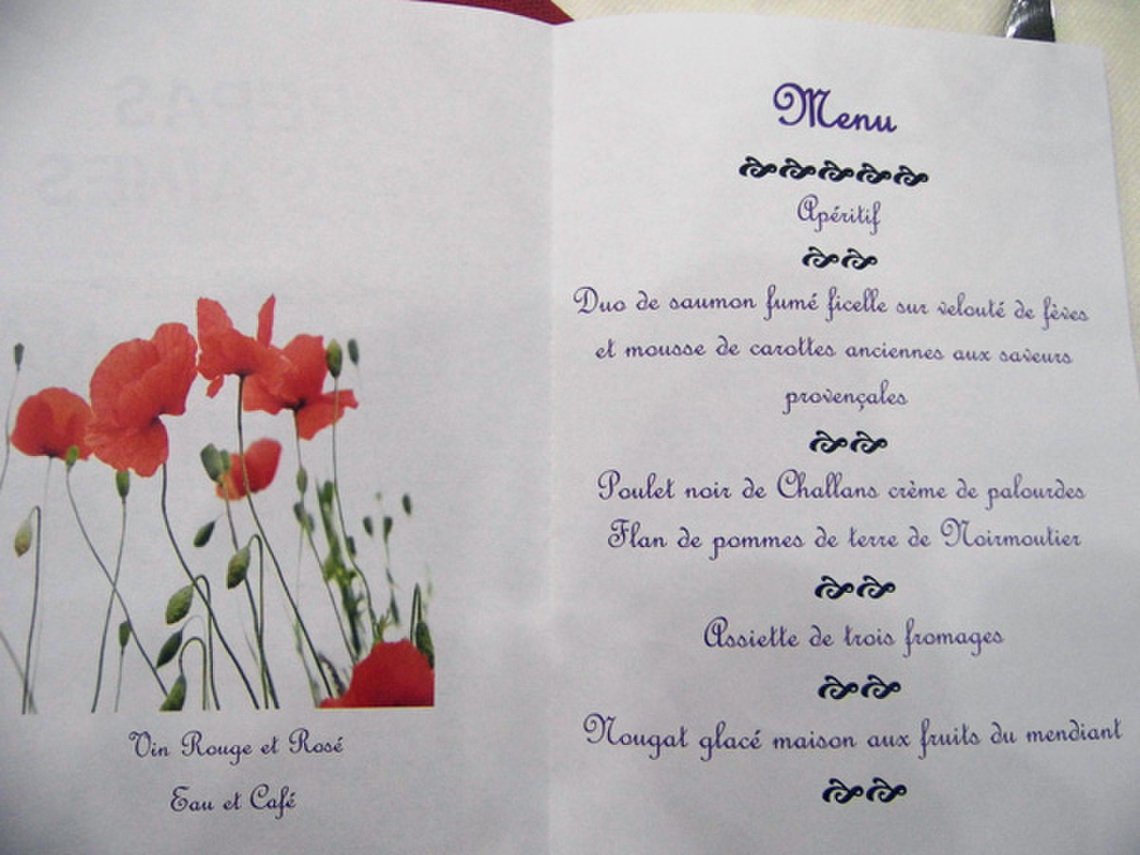 Vin Rouge et Rosé
Eau et Café
Menu
Apéritif
Duo de saumon fumé ficelle sur velouté de fèves
et mousse de carottes anciennes aux saveurs
provençales
Poulet noir de Challans crème de palourdes
Flan de pommes de terre de Noirmoutier
Assiette de trois fromages
Nougat glacé maison aux fruits du mendiant